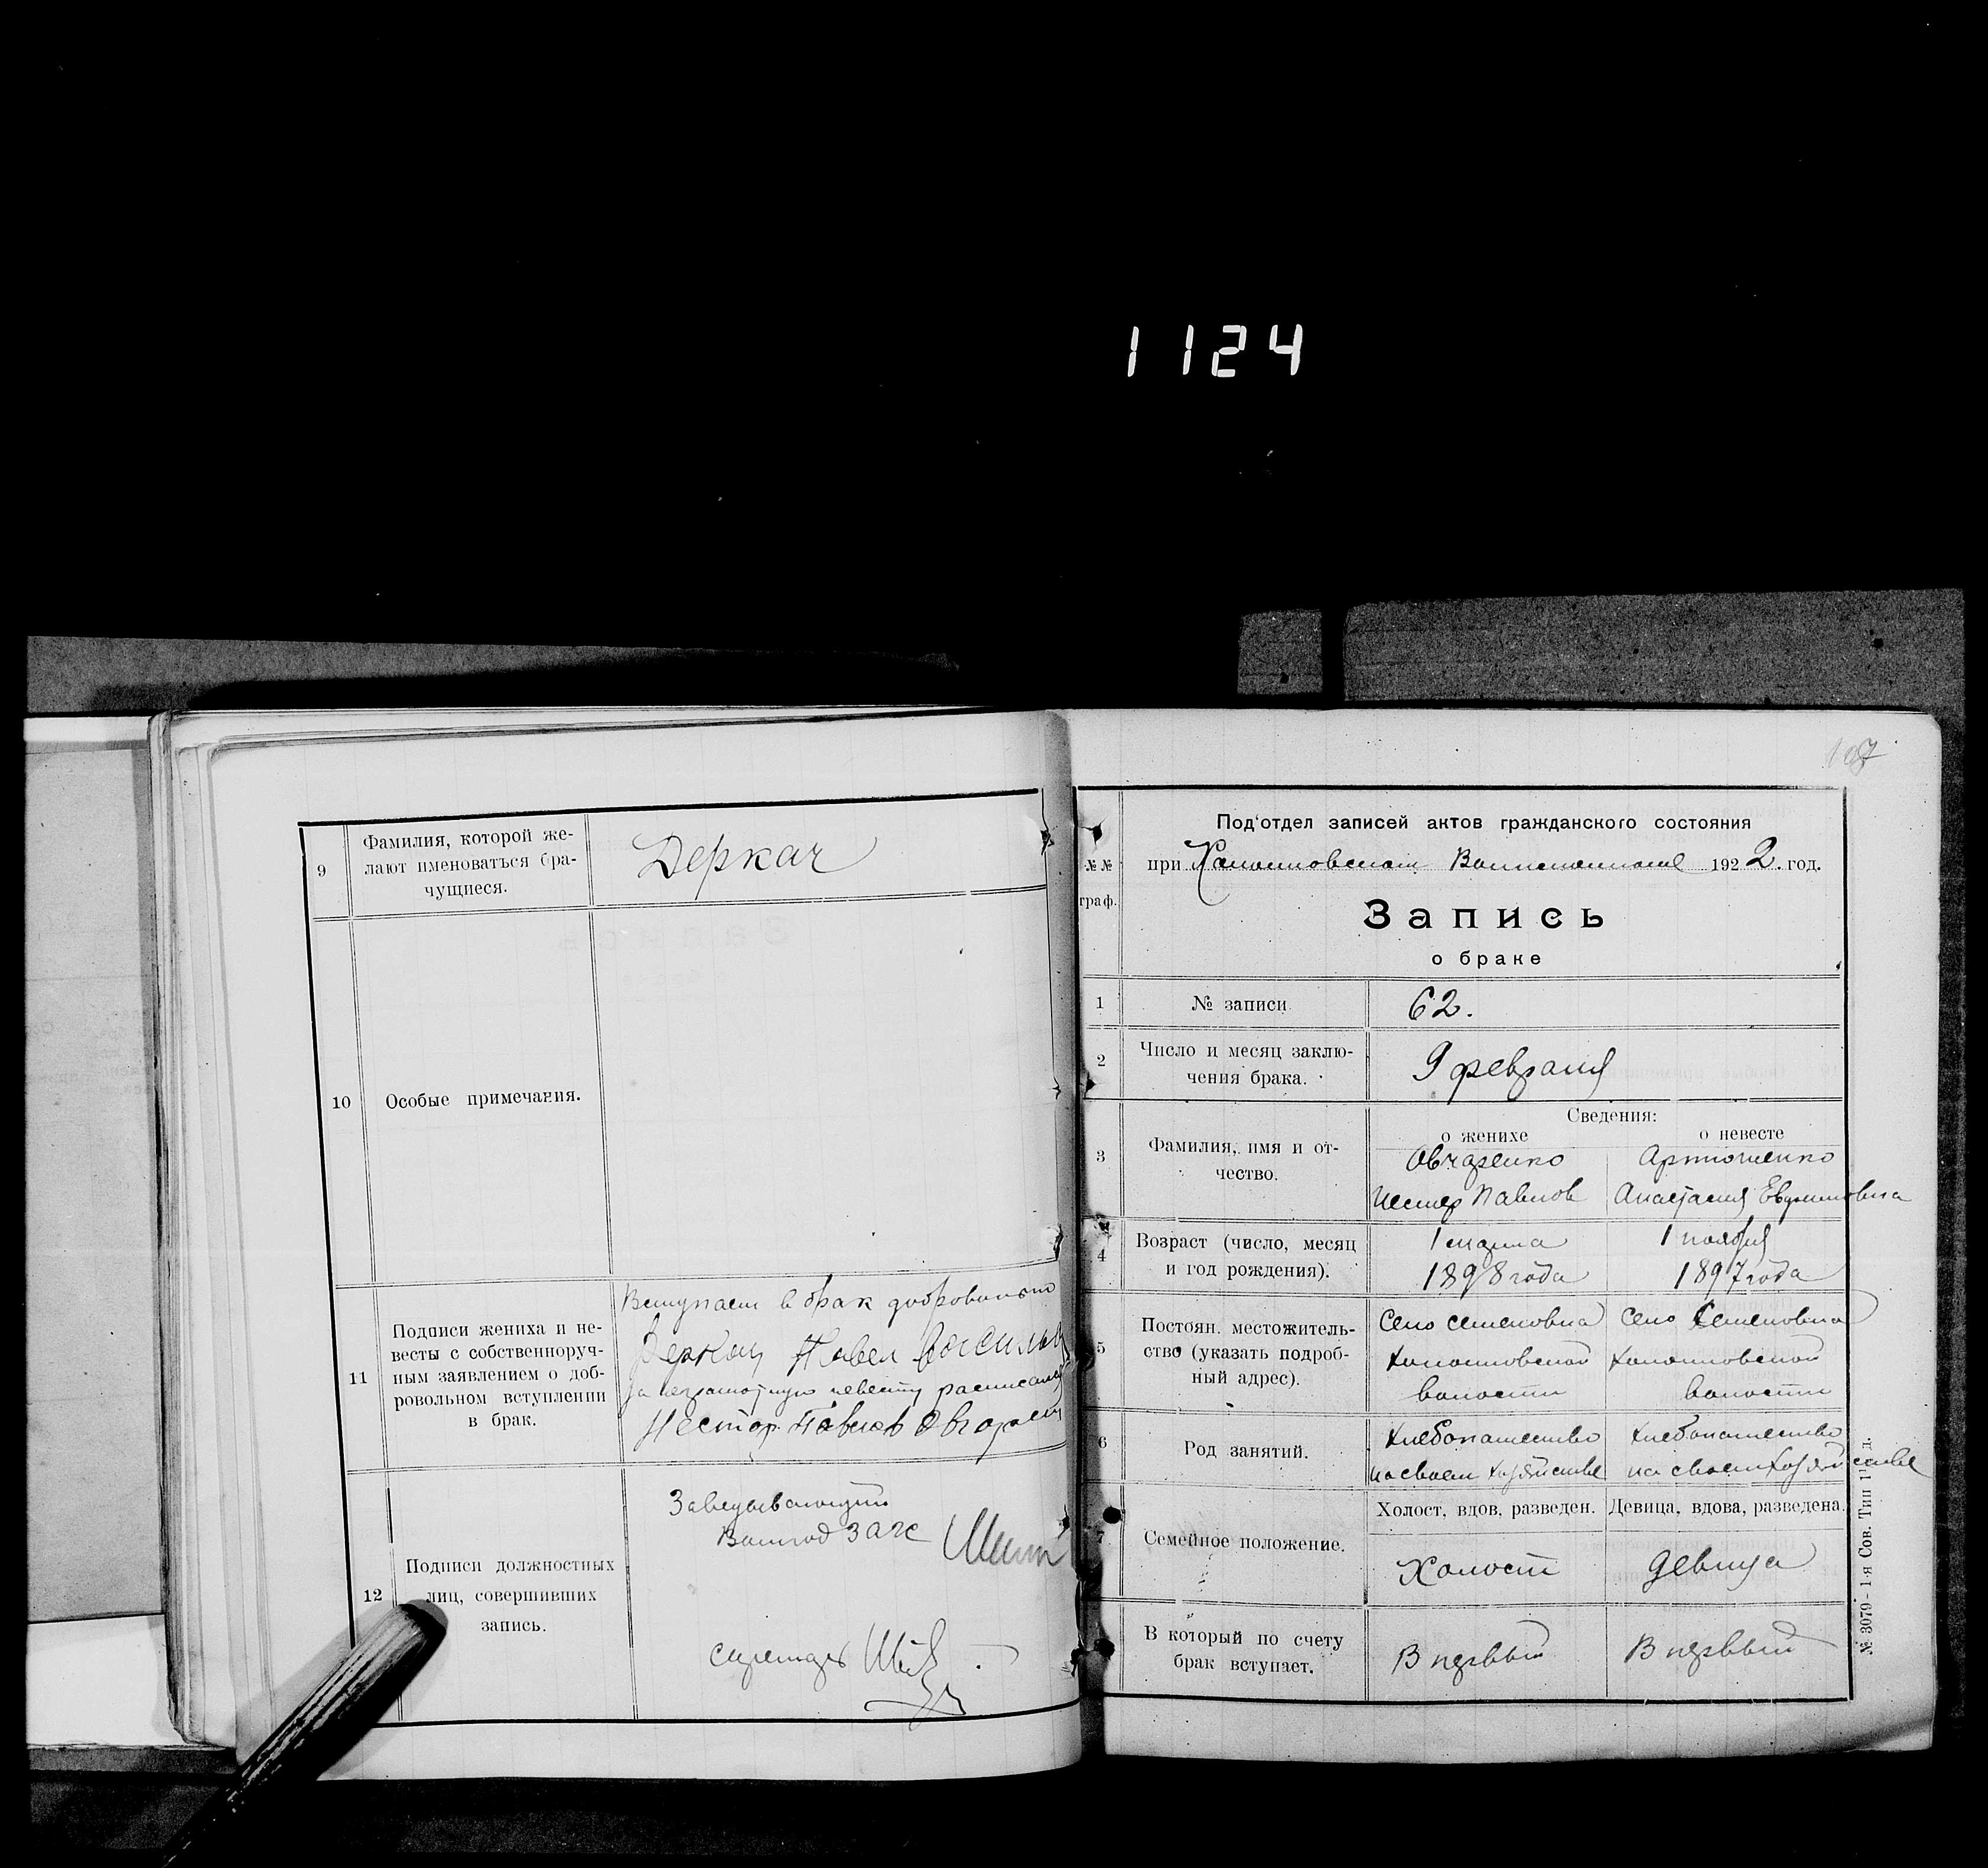 1124
9
Фамилия, которой же-
лают именоваться бра-
чущиеся.
Деркач
10
Особые примечания.
11
Подписи жениха и не-
весты с собственноруч-
ным заявлением о доб-
ровольном вступлении
в брак.
Вступаем в брак добровольно
Деркач Павел
за неграмотную невесту расписался
Нестор Павлов Овчарен
12
Подписи должностных
лиц, совершивших
запись.
Заведывающий
ЗАГС
секретарь
107
№№
граф.
Под'отдел записей актов гражданского состояния
при 1922. год.
Запись
о браке
1
№ записи
62.
2
Число и месяц заклю-
чения брака.
9 февраля
Сведения:
о женихе
о невесте
3
Фамилия, имя и от-
чество.
Овчаренко
Нестер Павлов
Артюшенко
Анастасия
4
Возраст (число, месяц
и год рождения).
1 марта
1898 года
1 ноября
1897 года
5
Постоян. местожитель-
ство (указать подроб-
ный адрес).
Село Семеновка
волости
Село Семеновка
волости
6
Род занятий.
Хлебопашество
на своем хозяйстве
Хлебопашество
на своем хозяйстве
7
Семейное положение.
Холост, вдов, разведен.
Девица, вдова, разведена.
Холост
девица
В который по счету
брак вступает.
В первый
В первый
№ 3079 - 1-я Сов. Тип